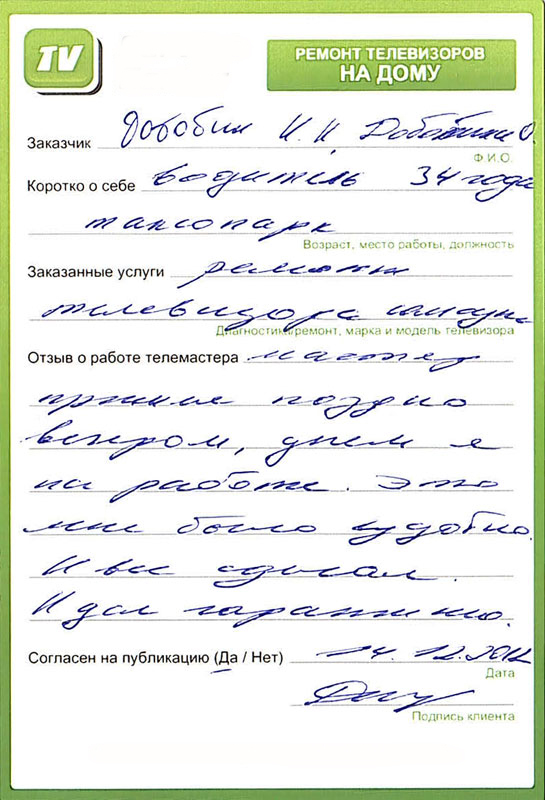 TV
РЕМОНТ ТЕЛЕВИЗОРОВ
НА ДОМУ
Заказчик
Ф.И.О.
Коротко о себе водитель 34 года
таксопарк
Возраст, место работы, должность
Заказанные услуги ремонт
телевизора
Диагностика/ремонт, марка и модель телевизора
Отзыв о работе телемастера мастер
пришел поздно
вечером, днем я
на работе. Это
мне было удобно.
И все сделал.
И дал гарантию.
Согласен на публикацию (Да / Нет) 14.12.2012
Дата
Подпись клиента